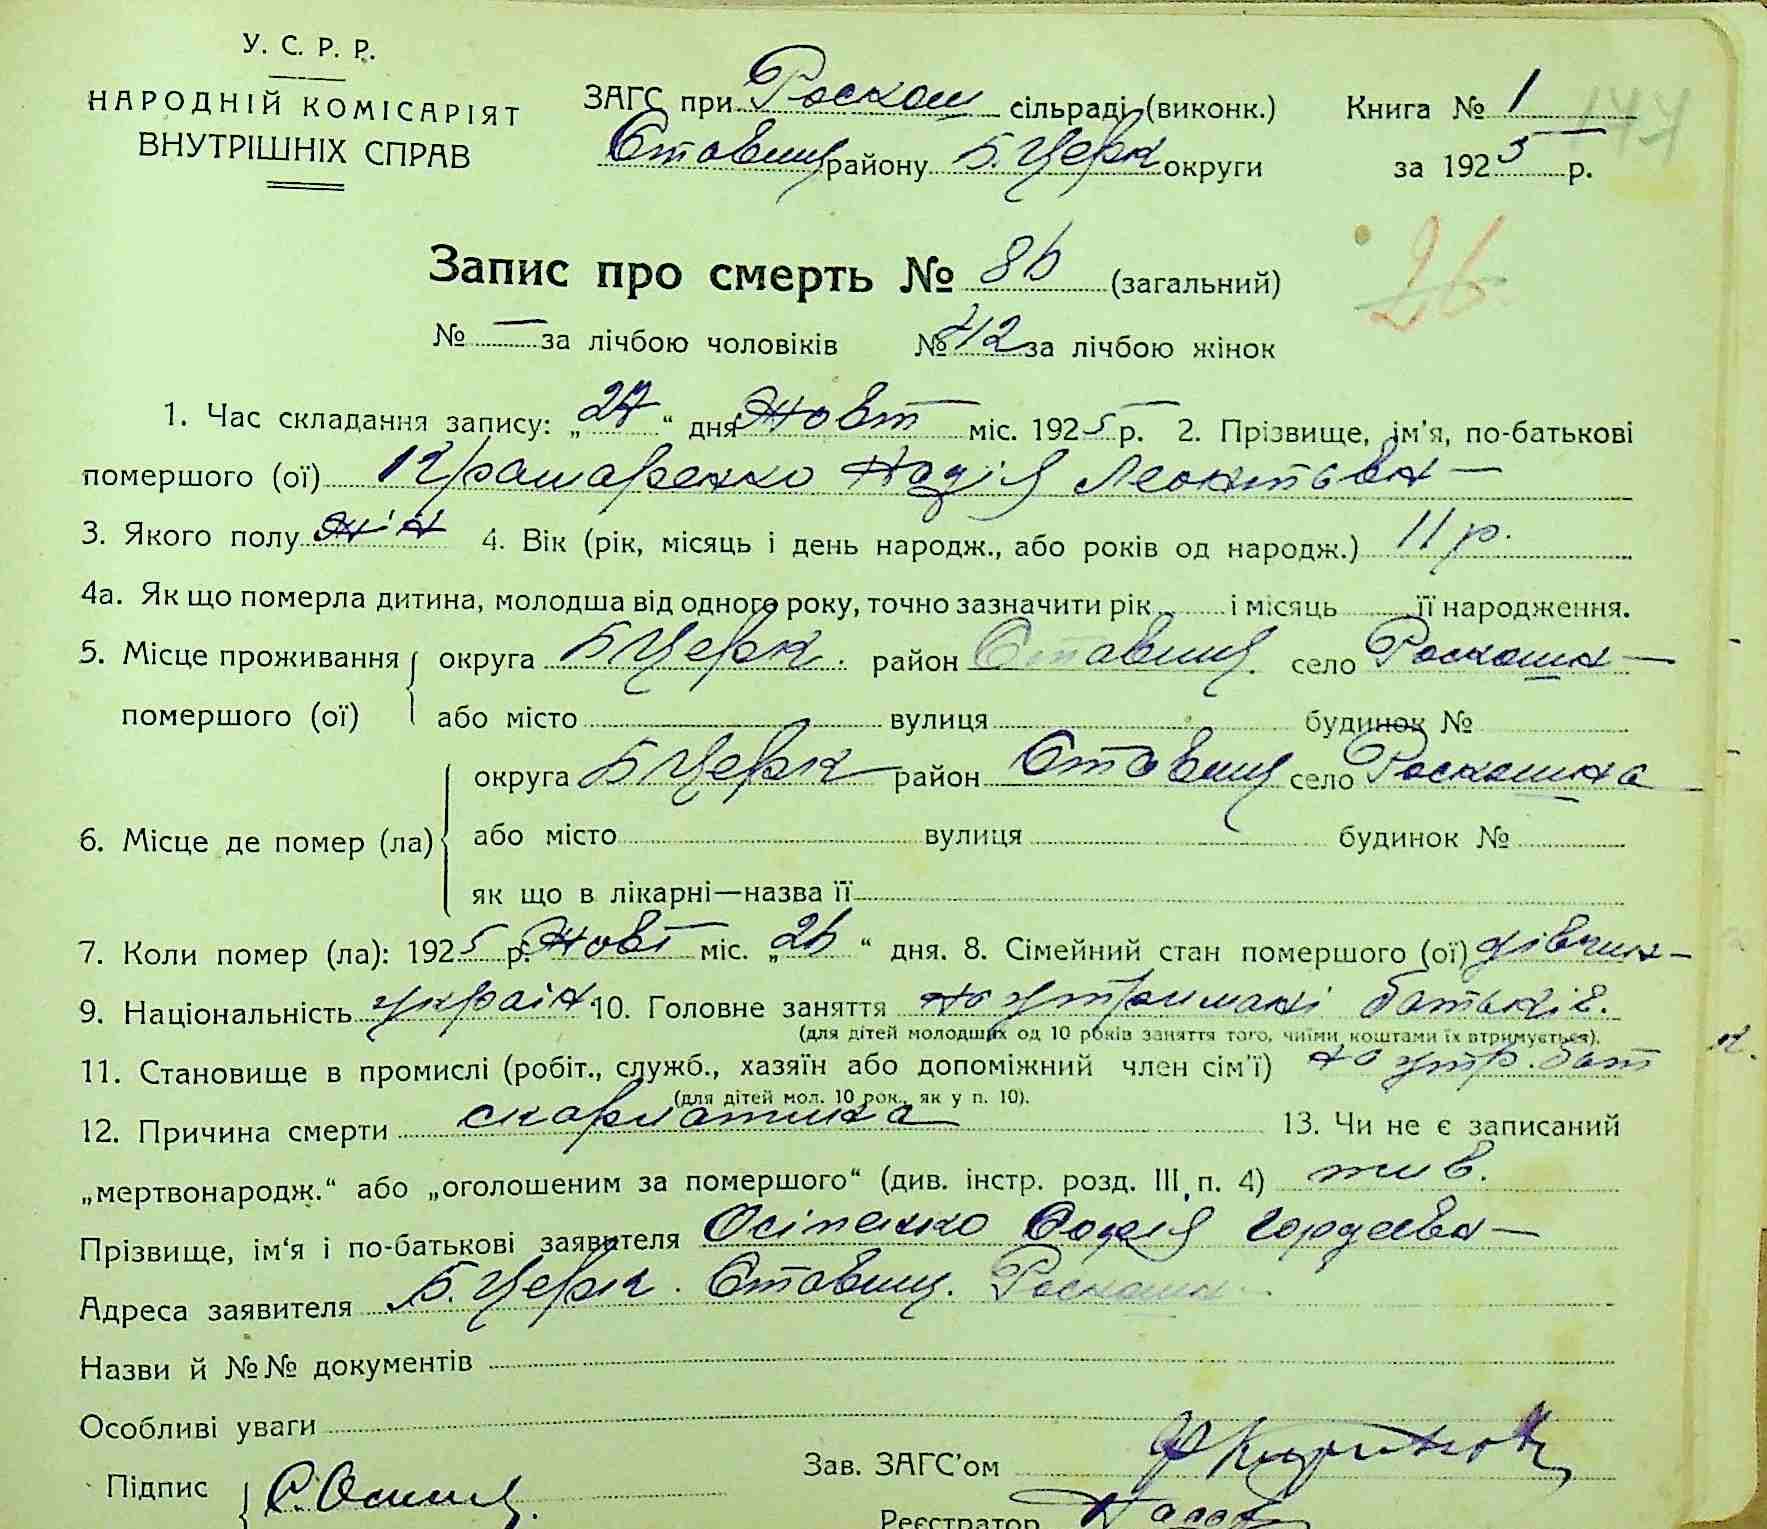 У. С. Р. Р.
НАРОДНІЙ КОМІСАРІЯТ
ВНУТРІШНІХ СПРАВ
ЗАГС при Роскош сільраді (виконк.)
Ставищ району Б. Церк округи
Книга № 1
за 1925 р.
177
26
Запис про смерть № 86 (загальний)
№ — за лічбою чоловіків № 42 за лічбою жінок
1. Час складання запису: „27“ дня Жовт міс. 1925 р. 2. Прізвище, ім'я, по-батькові
помершого (ої) Крамаренко Надія Леонтівн—
3. Якого полу жін 4. Вік (рік, місяць і день народж., або років од народж.) 11 р.
4а. Як що померла дитина, молодша від одного року, точно зазначити рік і місяць її народження.
5. Місце проживання округа Б Церк. район Ставищ село Роскошн—
помершого (ої) або місто вулиця будинок №
округа Б Церк район Ставищ село Роскошна
6. Місце де помер (ла) або місто вулиця будинок №
як що в лікарні—назва її
7. Коли помер (ла): 1925 р. Жовт міс. „26“ дня. 8. Сімейний стан помершого (ої) дівчин—
9. Національність україн. 10. Головне заняття на утримані батьків.
(для дітей молодших од 10 років заняття того, чиїми коштами їх втримується).
11. Становище в промислі (робіт., служб., хазяїн або допоміжний член сім'ї) на утр. бат
(для дітей мол. 10 рок., як у п. 10).
12. Причина смерти скарлатина 13. Чи не є записаний
„мертвонародж.“ або „оголошеним за помершого“ (див. інстр. розд. III, п. 4)
Прізвище, ім'я і по-батькові заявителя Осіпенко Софія Гордеівн—
Адреса заявителя Б. Церк. Ставищ. Роскошн
Назви й №№ документів
Особливі уваги
Зав. ЗАГС'ом
Підпис
Реєстратор